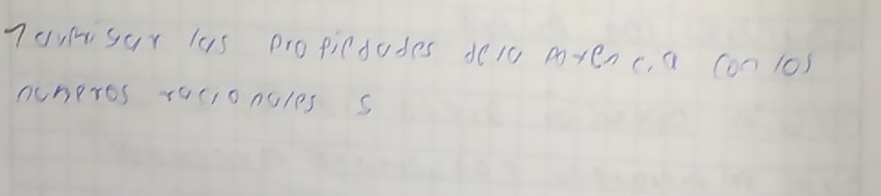 las propiedades de la potencia con los
numeros racionales s